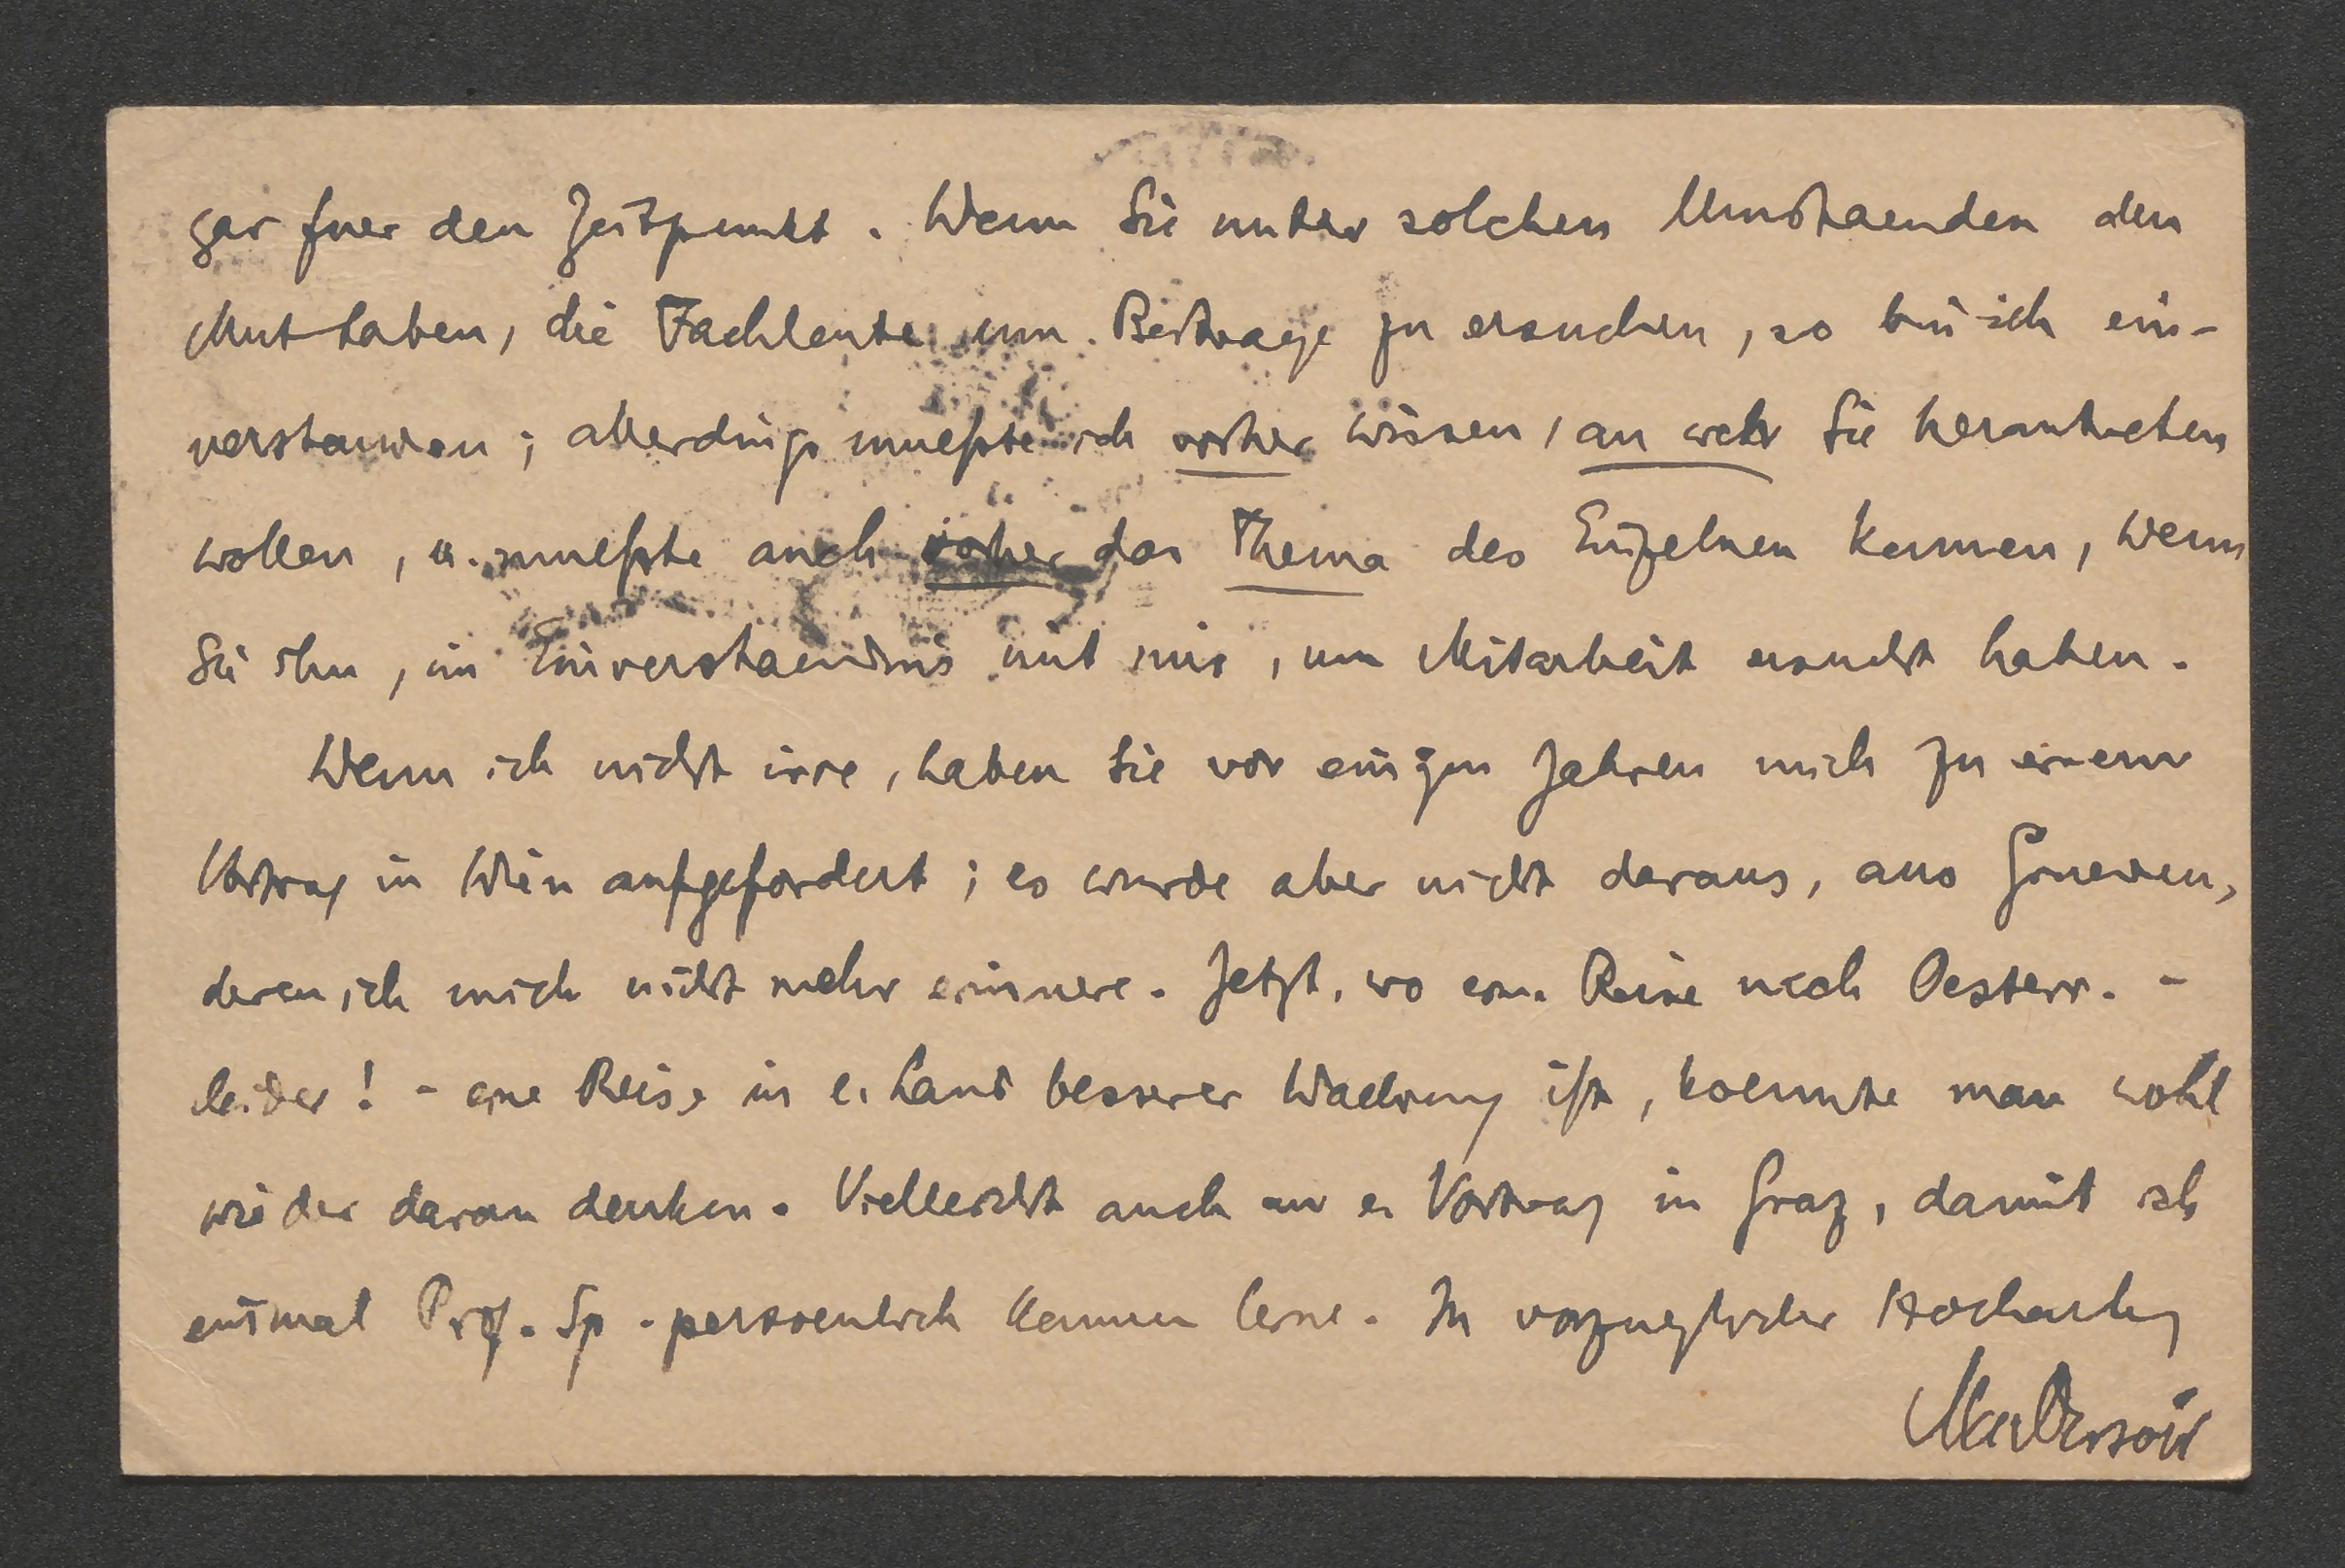 gar fuer den Zeitpunkt. Wenn Sie unter solchen Umstaenden den
Mut haben, die Fachleute um Beitraege zu ersuchen, so bin ich ein-
verstanden; allerdings muesste ich vorher wissen, an wen Sie herantreten
wollen, u. muesste auch vorher das Thema des Einzelnen kennen, wenn
Sie ihn, im Einverstaendnis mit mir, um Mitarbeit ersucht haben.
Wenn ich nicht irre, haben Sie vor einigen Jahren mich zu einem
Vortrag in Wien aufgefordert; es wurde aber nicht daraus, aus Gruenden,
deren ich mich nicht mehr erinnere. Jetzt, wo eine Reise nach Oesterr. -
leider! - eine Reise in e. Land besserer Waehrung ist, koennte man wohl
wieder daran denken. Vielleicht auch an e. Vortrag in Graz, damit ich
einmal Prof. Sp. persoenlich kennen lerne. In vorzueglicher Hochachtung
Max Dessoir